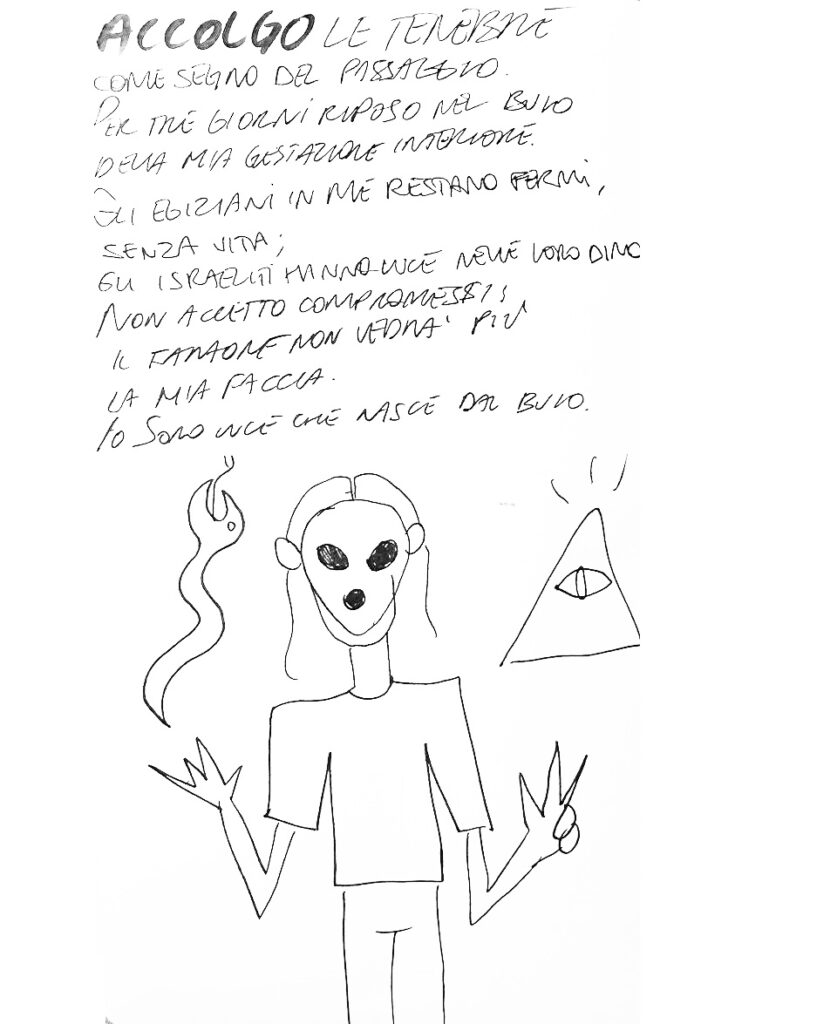 ACCOLGO LE TENEBRE
COME SEGNO DEL PASSAGGIO.
PER TRE GIORNI RIPOSO NEL BUIO
DELLA MIA GESTAZIONE INTERIORE.
GLI EGIZIANI IN ME RESTANO FERMI,
SENZA VITA;
GLI ISRAELITI HANNO LUCE NELLE LORO DIMO
NON ACCETTO COMPROMESSI:
IL FARAONE NON VEDRA' PIÙ
LA MIA FACCIA.
IO SONO LUCE CHE NASCE DAL BUIO.